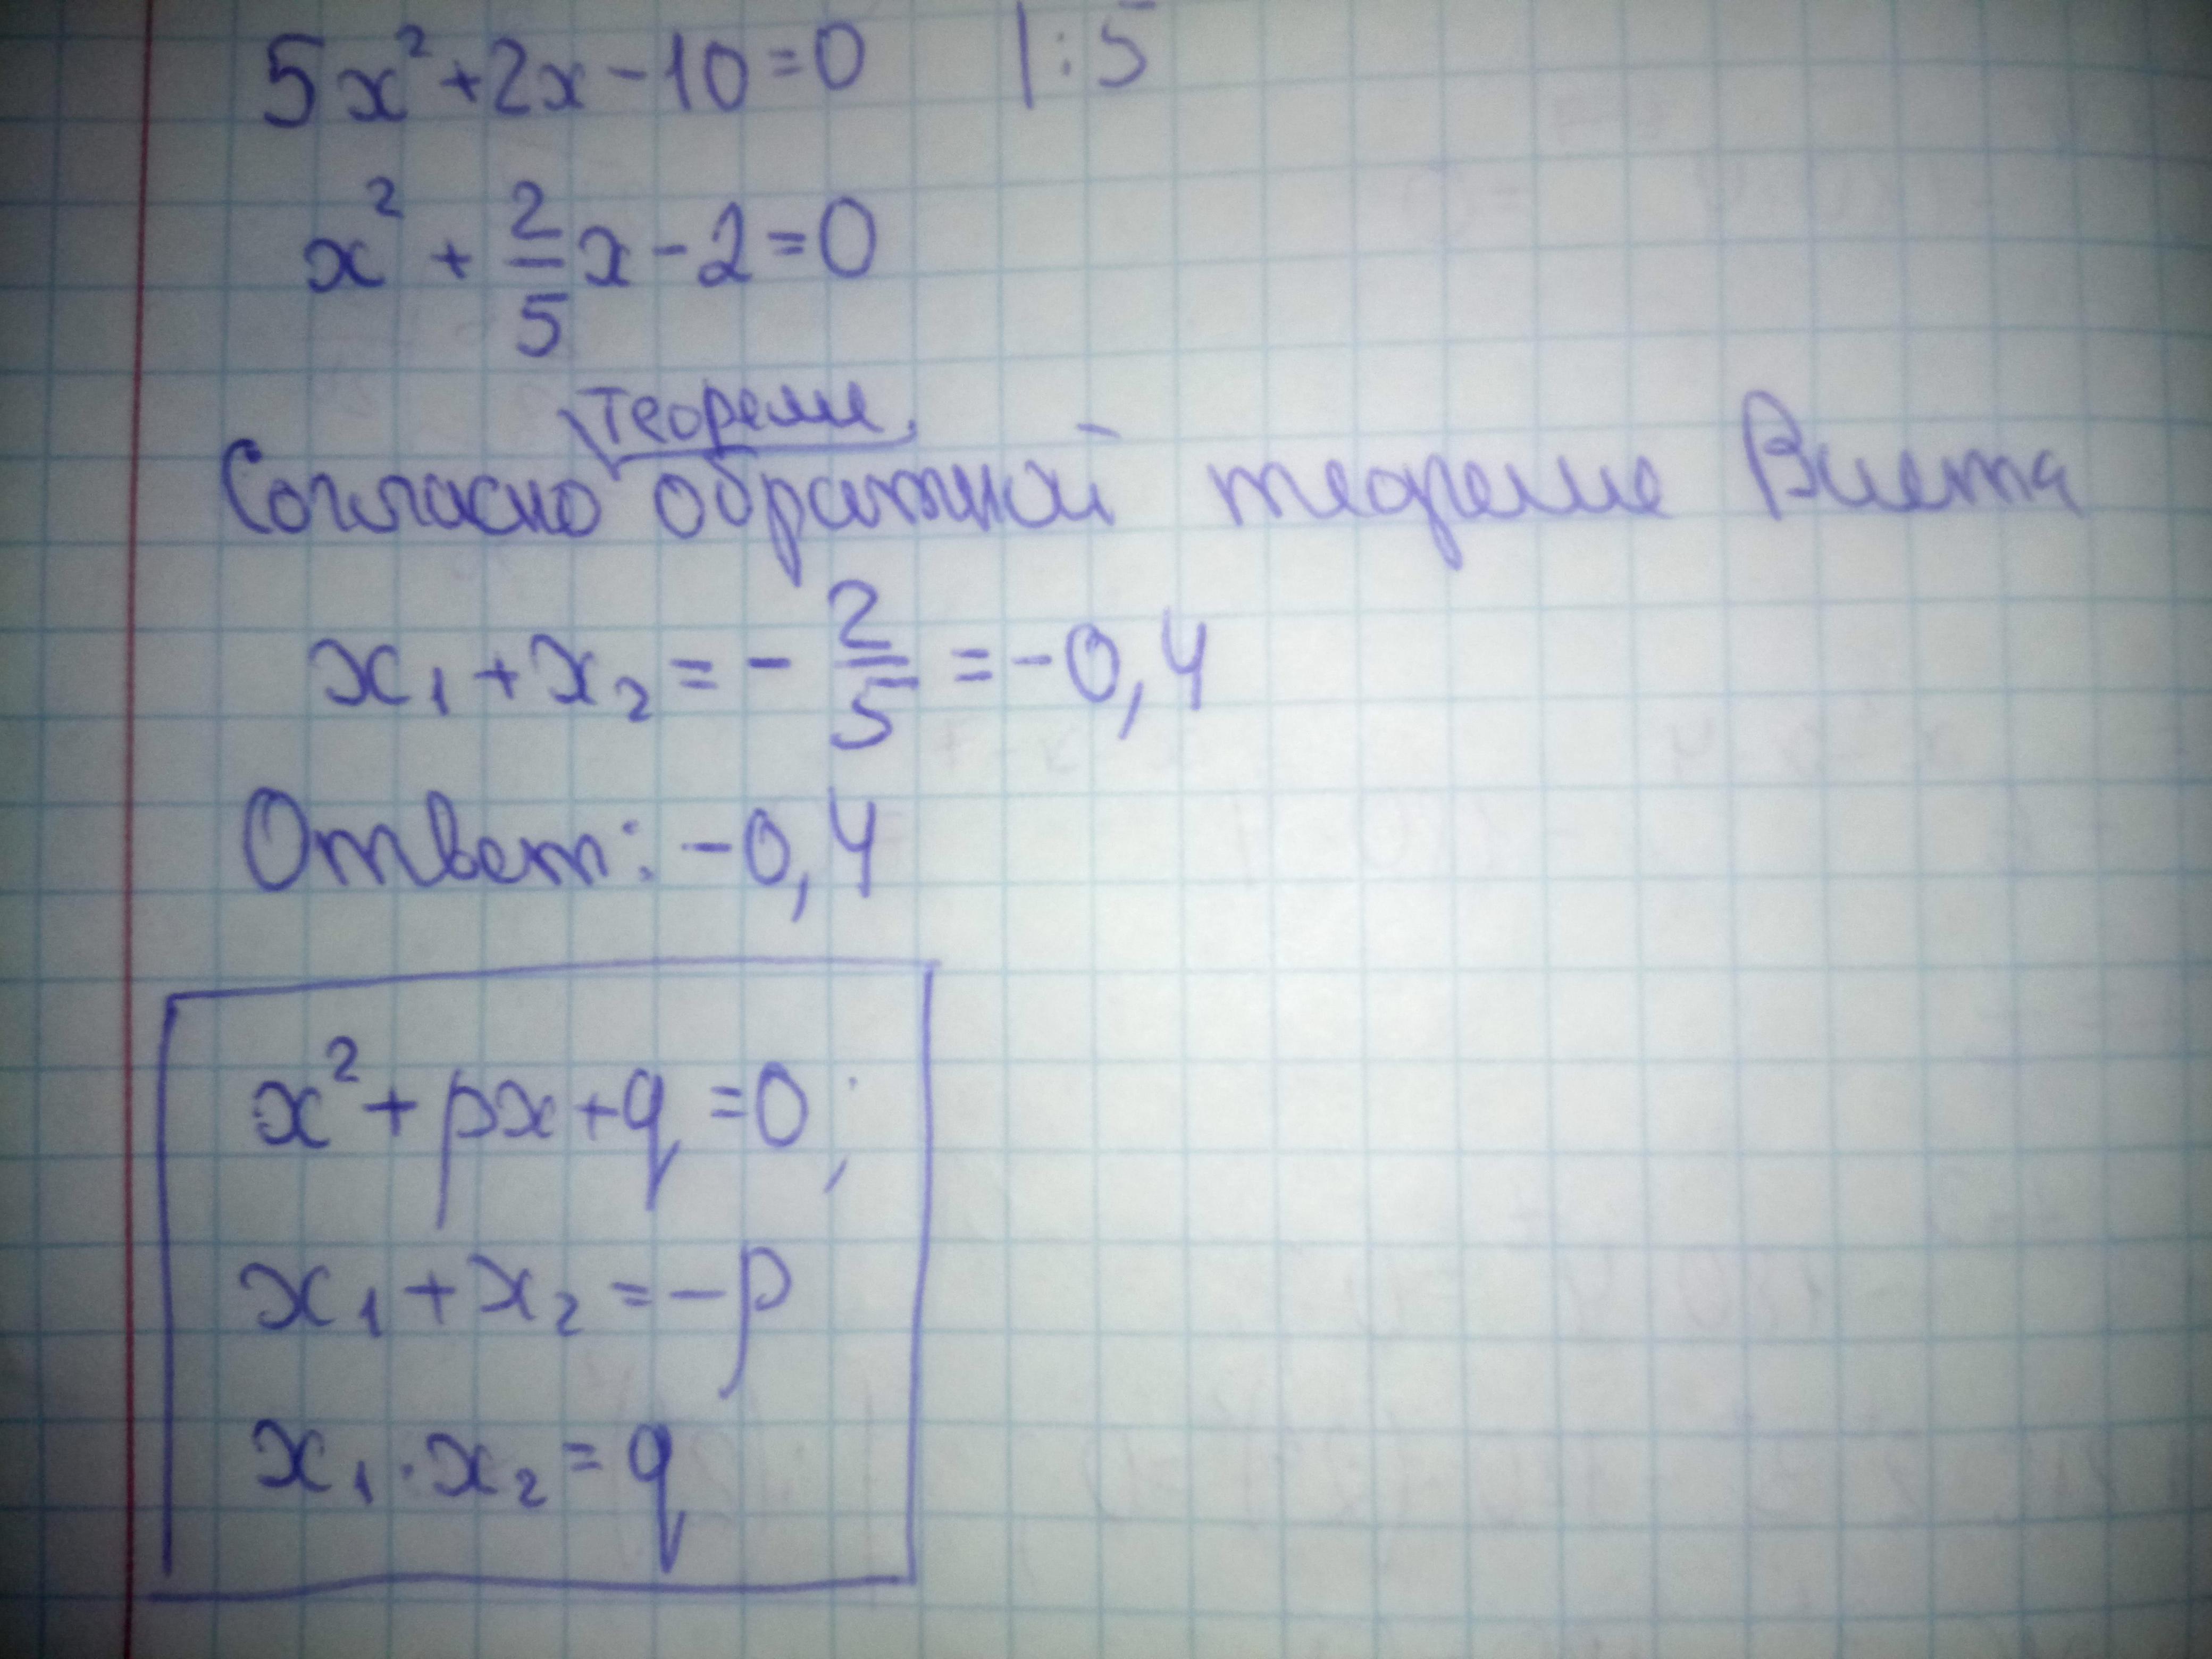 5x²+2x-10=0 |:5
x² + 2/5 x - 2 = 0
теореме,
Согласно обратной теореме Виета
x₁+x₂ = - 2/5 = -0,4
Ответ: -0,4
x²+px+q=0;
x₁+x₂=-p
x₁·x₂=q